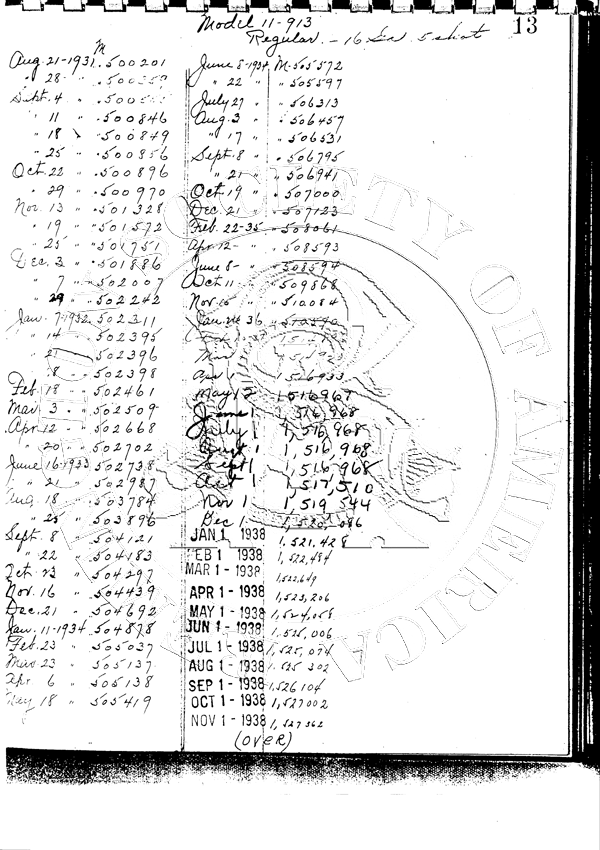 Model 11-913
Regular - 16 Ga. 5 shot
13
M
Aug. 21-1931 . 500201
" 28 - " . 500359
Sept. 4 " .
" 11 " . 500846
" 18 " 500849
" 25 " . 500856
Oct. 22 " . 500896
" 29 " . 500970
Nov. 13 " . 501328
" 19 " " 501572
" 25 " " 501751
Dec. 3 " . 501886
" 7 " " 502007
" 29 " " 502242
Jan. 7-1932 502311
" 14 " 502395
" 21 " 502396
" 8 " 502398
Feb. 18 - " 502461
Mar. 3 " 502509
Apr. 12 - " 502668
" 20 " " 502702
June 16-1933 502738
" 21 " 502987
Aug. 18 " 503784
" 25 " 503896
Sept. 8 " 504121
" 22 " 504183
Oct. 23 " 504297
Nov. 16 " 504439
Dec. 21 " 504692
Jan. 11-1934 504878
Feb. 23 " 505037
Mar 23 " 505137
Apr. 6 " 505138
May 18 " 505419
June 8-1934 M. 505572
" 22 " " 505597
July 27 " " 506313
Aug. 3 " " 506457
" 17 " " 506531
Sept. 8 " . 506795
" 21 " " 506941
Oct. 19 " . 507000
Dec. 21 " . 507123
Feb. 22-35 - 508061
Apr. 12 - " . 508593
June 8 - " . 508594
Oct. 11 - " 509868
Nov. 15 " " 510084
Jan. 36
Mar 1
Apr 1 1516933
May 1 516967
June 1 1,516,968
July 1 1,516,968
August 1 1,516,968
Sept 1 1,516,968
Oct 1 1,517,510
Nov 1 1,519,544
Dec 1
JAN 1 1938 1,521,428
FEB 1 1938 1,522,484
MAR 1 - 1938 1,522,649
APR 1 - 1938 1,523,206
MAY 1 - 1938 1,524,058
JUN 1 - 1938 1,525,006
JUL 1 - 1938 1,525,074
AUG 1 - 1938 1,525 302
SEP 1 - 1938 1,526 104
OCT 1 - 1938 1,527002
NOV 1 - 1938 1,527362
(OVER)
SOCIETY OF AMERICA